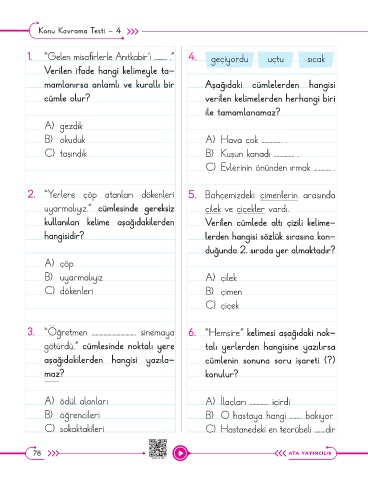 Konu Kavrama Testi - 4
1. "Gelen misafirlerle Anıtkabir'i ........ ."
Verilen ifade hangi kelimeyle ta-
mamlanırsa anlamlı ve kurallı bir
cümle olur?
A) gezdik
B) okuduk
C) taşındık
2. "Yerlere çöp atanları dökenleri
uyarmalıyız." cümlesinde gereksiz
kullanılan kelime aşağıdakilerden
hangisidir?
A) çöp
B) uyarmalıyız
C) dökenleri
3. "Öğretmen .......................... sinemaya
götürdü." cümlesinde noktalı yere
aşağıdakilerden hangisi yazıla-
maz?
A) ödül alanları
B) öğrencileri
C) sokaktakileri
4. geçiyordu uçtu sıcak
Aşağıdaki cümlelerden hangisi
verilen kelimelerden herhangi biri
ile tamamlanamaz?
A) Hava çok ............. .
B) Kuşun kanadı ............. .
C) Evlerinin önünden ırmak ............ .
5. Bahçemizdeki çimenlerin arasında
çilek ve çiçekler vardı.
Verilen cümlede altı çizili kelime-
lerden hangisi sözlük sırasına kon-
duğunda 2. sırada yer almaktadır?
A) çilek
B) çimen
C) çiçek
6. "Hemşire" kelimesi aşağıdaki nok-
talı yerlerden hangisine yazılırsa
cümlenin sonuna soru işareti (?)
konulur?
A) İlaçları ............ içirdi
B) O hastaya hangi ........ bakıyor
C) Hastanedeki en tecrübeli .......dir
78
ATA YAYINCILIK